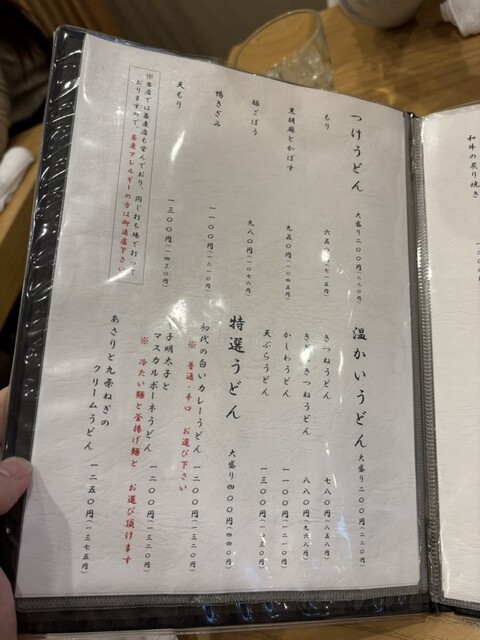 つけうどん 大盛り二〇〇円(二二〇)
もり 六五〇円(七一五円)
黒胡麻とかぼす 九五〇円(一〇四五円)
豚ごぼう 九八〇円(一〇七八円)
鴨きざみ 一一〇〇円(一二一〇円)
天もり 一三〇〇円(一四三〇円)
※当店では蕎麦店も営んでおり、同じ打ち場で打って
おりますので、蕎麦アレルギーの方は御遠慮下さい
温かいうどん 大盛り二〇〇円(二二〇円)
きつねうどん 七八〇円(八五八円)
きざみきつねうどん 八八〇円(九六八円)
かしわうどん 一一〇〇円(一二一〇円)
天ぷらうどん 一三〇〇円(一四三〇円)
特選うどん 大盛り四〇〇円(四四〇円)
初代の白いカレーうどん 一二〇〇円(一三二〇円)
※ 普通・辛口 お選び下さい
子明太子と
マスカルポーネうどん 一二〇〇円(一三二〇円)
※ 冷たい麺と釜揚げ麺と お選び頂けます
あさりと九条ねぎの
クリームうどん 一二五〇円(一三七五円)
和牛の炙り焼き